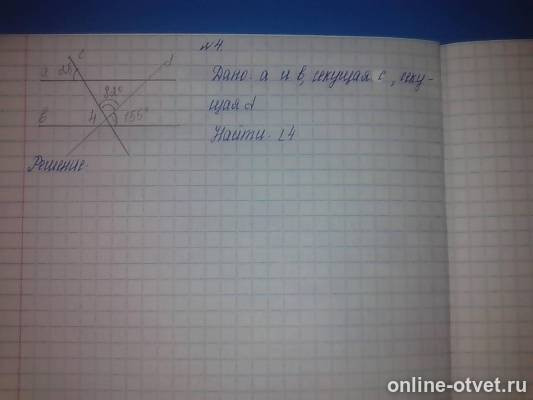 №4.
Дано: а и в, секущая с, секу-
щая d
Найти: ∠4
c
d
а
28
82°
в
4
155°
Решение:
online-otvet.ru